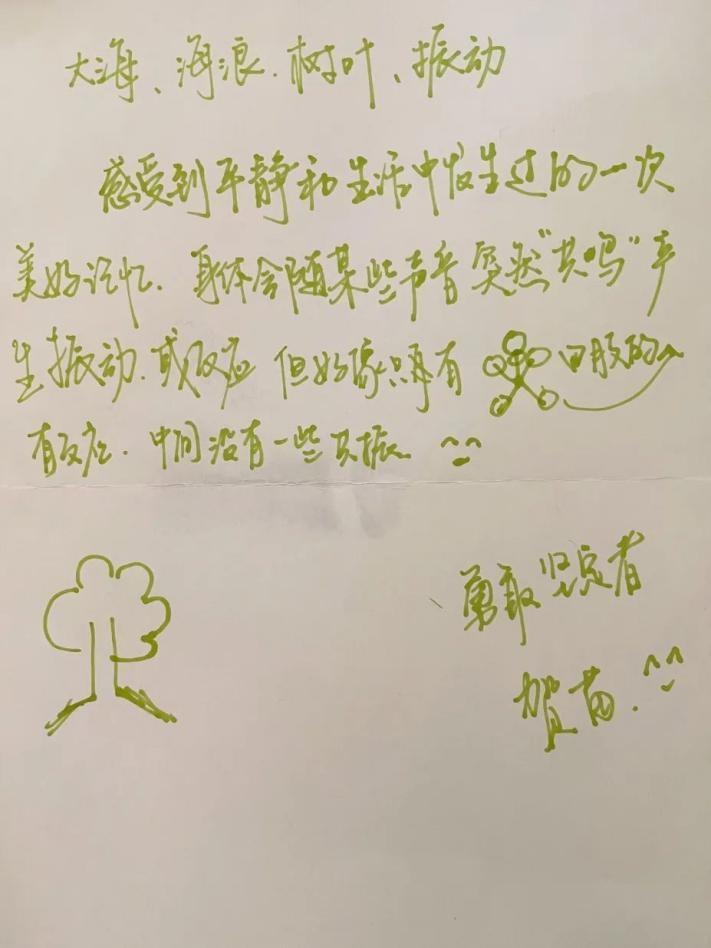 大海、海浪.树叶、振动
感受到平静和生活中发生过的一次
美好记忆.身体会随某些声音突然“共鸣”产
生振动.或反应 但好像只有 四肢的
有反应.中间没有一些共振 ^_^
勇敢坚定者
贺苗.^_^